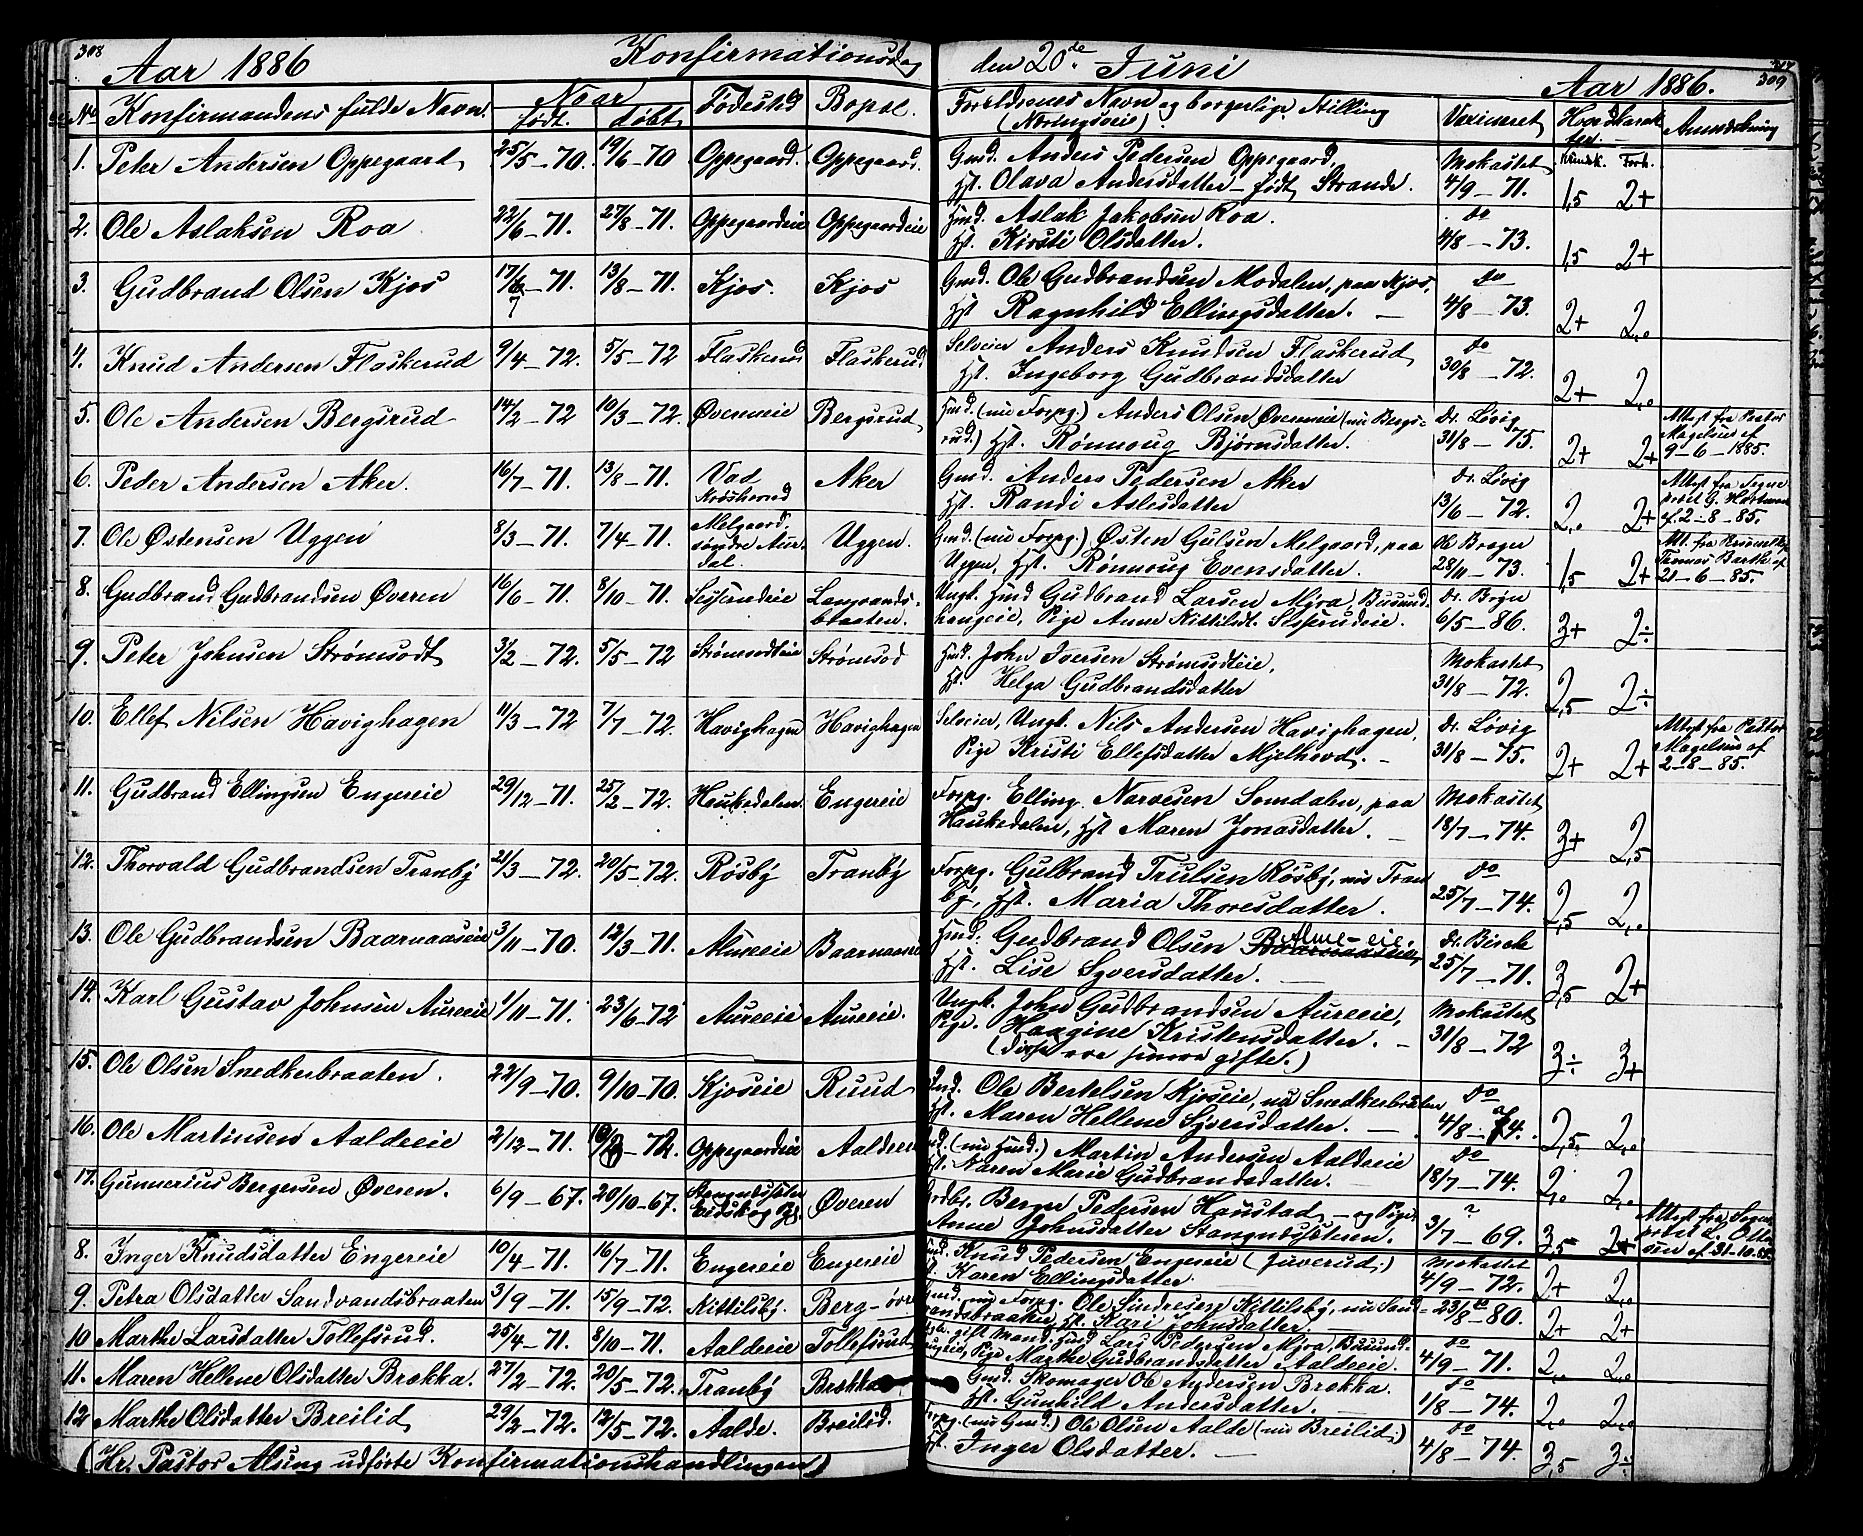 308
Aar 1886
Konfirmationsdag
den 20de Juni
Aar 1886.
309
No Konfirmandens fulde Navn. Naar født. døbt. Fødested Bopæl. Forældrenes Navn og borgerlige Stilling (Næringsveie). Vaccineret Hoved Karakter. Kundsk. Forh. Anmærkning
1. Peter Andersen Oppegaard 25/5-70. 19/6-70 Oppegaard. Oppegaard. Gmd. Anders Pedersen Oppegaard,
Hst. Olava Andersdatter - født Strande. Mokastet 4/9-71. 1,5 2+
2. Ole Aslaksen Roa 22/6-71. 27/8-71. Oppegaardeie Oppegaardeie Hmd. Aslak Jakobsen Roa.
Hst. Kirsti Olsdatter. do 4/8-73. 1,5 2+
3. Gudbrand Olsen Kjos 17/7-71. 13/8-71. Kjos. Kjos Gmd. Ole Gudbrandsen Modalen, paa Kjos,
Hst. Ragnhild Ellingsdatter. do 4/8-73. 2+ 2,0
4. Knud Andersen Flaskerud 9/4-72. 5/5-72 Flaskerud Flaskerud. Selveier Anders Knudsen Flaskerud
Hst. Ingeborg Gudbrandsdatter do 30/8-72. 2+ 2,0
5. Ole Andersen Bergsrud 14/2-72 10/3-72. Øveneie Bergsrud Hmd. (nu Forpg.) Anders Olsen Øveneie (nu Bergs=
rud.) Hst. Rønnoug Bjørnsdatter. dr. Løvig 31/8-75. 2+ 2+ Attest fra Pastor
Magelsen af
9-6-1885.
6. Peder Andersen Aker. 16/7-71. 13/8-71. Vad
Krødsherred Aker Gmd. Anders Pedersen Aker
Hst. Randi Aslesdatter dr. Løvig 13/6-72. 2,0 2+ Attest fra Sogne
præst G. Hartman
af 2-8-85.
7. Ole Østensen Uggen 8/3-71. 7/4-71. Melgaard.
søndre Aur=
dal. Uggen. Gmd. (nu Forpg.) Østen Gulsen Melgaard, paa
Uggen, Hst. Rønnoug Evensdatter. Ole Brager 28/11-73. 1,5 2+ Att. fra
Thomas Barth af
21-6-85.
8. Gudbrand Gudbrandsen Øveren 16/6-71. 8/10-71. Seiferudeie Langvands=
braaten. Ungk. Hmd Gudbrand Larsen Myra, Busund=
haugeie, Pige Anne Kittilsdt. Seiferudeie. dr. Bryn 6/5-86. 3+ 2÷
9. Peter Johnsen Strømsodt 3/2-72. 5/5-72 Strømsodteie Strømsod Hmd. John Iversen Strømsodteie,
Hst. Helga Gudbrandsdatter Mokastet 31/8-72. 2,5 2÷
10. Ellef Nilsen Havighagen 11/3-72 7/7-72. Havighagen Havighagen Selveier, Ungk. Nils Andersen Havighagen,
Pige Kristi Ellefsdatter Mjelhovd. dr. Løvig 31/8-75. 2+ 2+ Attest fra Pastor
Magelsen af
2-8-85.
11. Gudbrand Ellingsen Engereie 29/12-71. 25/2-72. Haukedalen. Engereie Forpg. Elling Narvesen Somdalen, paa
Haukedalen, Hst Maren Jonasdatter. Mokastet 18/7-74. 3+ 2,5
12. Thorvald Gudbrandsen Tranby 21/3-72. 20/5-72. Røsby Tranby Forpg. Gulbrand Trulsen Røsby, nu Tran
by, Hst. Maria Thoresdatter. do 25/7-74. 2,5 2,0
13. Ole Gudbrandsen Baarnaaseie 3/11-70. 12/3-71. Almeeie Baarnaaseie Hmd. Gudbrand Olsen Alme-eie.
Hst. Lise Syversdatter. dr. Birch 25/7-71. 3,5 2+
14. Karl Gustav Johnsen Aureeie 1/11-71. 23/6-72 Aureeie Aureeie. Ungk. John Gudbrandsen Aureeie,
Pige. Haagine Kristensdatter.
(disse ere senere gifte.) Mokastet 31/8-72 3÷ 3+
15. Ole Olsen Snedkerbraaten. 22/9-70. 9/10-70. Kjoseie Ruud Ind. Ole Bertelsen Kjoseie, nu Snedkerbraaten
Hst. Maren Hellene Syversdatter. do 4/8-74. 2,5 2,0
16. Ole Martinsen Aaldreie 2/12-71. -72. Oppegaardeie Aaldreie (nu Hmd.) Martin Andersen Aaldreie
Hst. Karen Marie Gudbrandsdatter. do 18/7-74. 2,0 2,0
17. Gunnerius Bergersen Øveren. 6/9-67. 20/10-67. Stangnessæter
Eidskog Øveren Berger Pedersen Haustad - og Pige
Anne Johnsdatter Stangnesseteren. ? 3/7-69. 3,5 2+ Attest fra Sogne
præst
af 31-10-85.
8. Inger Knudsdatter Engereie 10/4-71. 16/7-71. Engereie Engereie Knud Pedersen Engereie (Juverud.)
Hst. Karen Ellingsdatter Mokastet 4/9-72. 2+ 2,0
9. Petra Olsdatter Sandvandsbraaten 3/9-71. 15/9-72. Kittilsby. Berg-øvre Gmd. nu Forpg. Ole Sindresen Kittilsby, nu Sand=
vandsbraaten, Hst. Kari Johnsdatter. 23/8-80. 2+ 2+
10 Marthe Larsdatter Tollefsrud. 25/4-71. 8/10-71. Aaldreie Tollefsrud gift Mand. Hmd Lars Pedersen Myra, Busund=
haugeie, Pige Marthe Gudbrandsdatter Aaldreie. do 4/9-71. 2,0 2,0
11. Maren Hellene Olsdatter Brækka. 27/2-72. 20/5-72. Tranby Brækka Gmd. Skomager Ole Andersen Brekka.
Hst. Gunhild Andersdatter. do 1/8-74. 2,0 2,0
12 Marthe Olsdatter Breilid 29/2-72. 12/5-72. Aalde. Breilid. Forpg. (nu Gmd.) Ole Olsen Aalde (nu Breilid.)
Hst. Inger Olsdatter. do 4/8-74. 3,5 3÷
(Hr. Pastor Alsing udførte Konfirmationshandlingen)